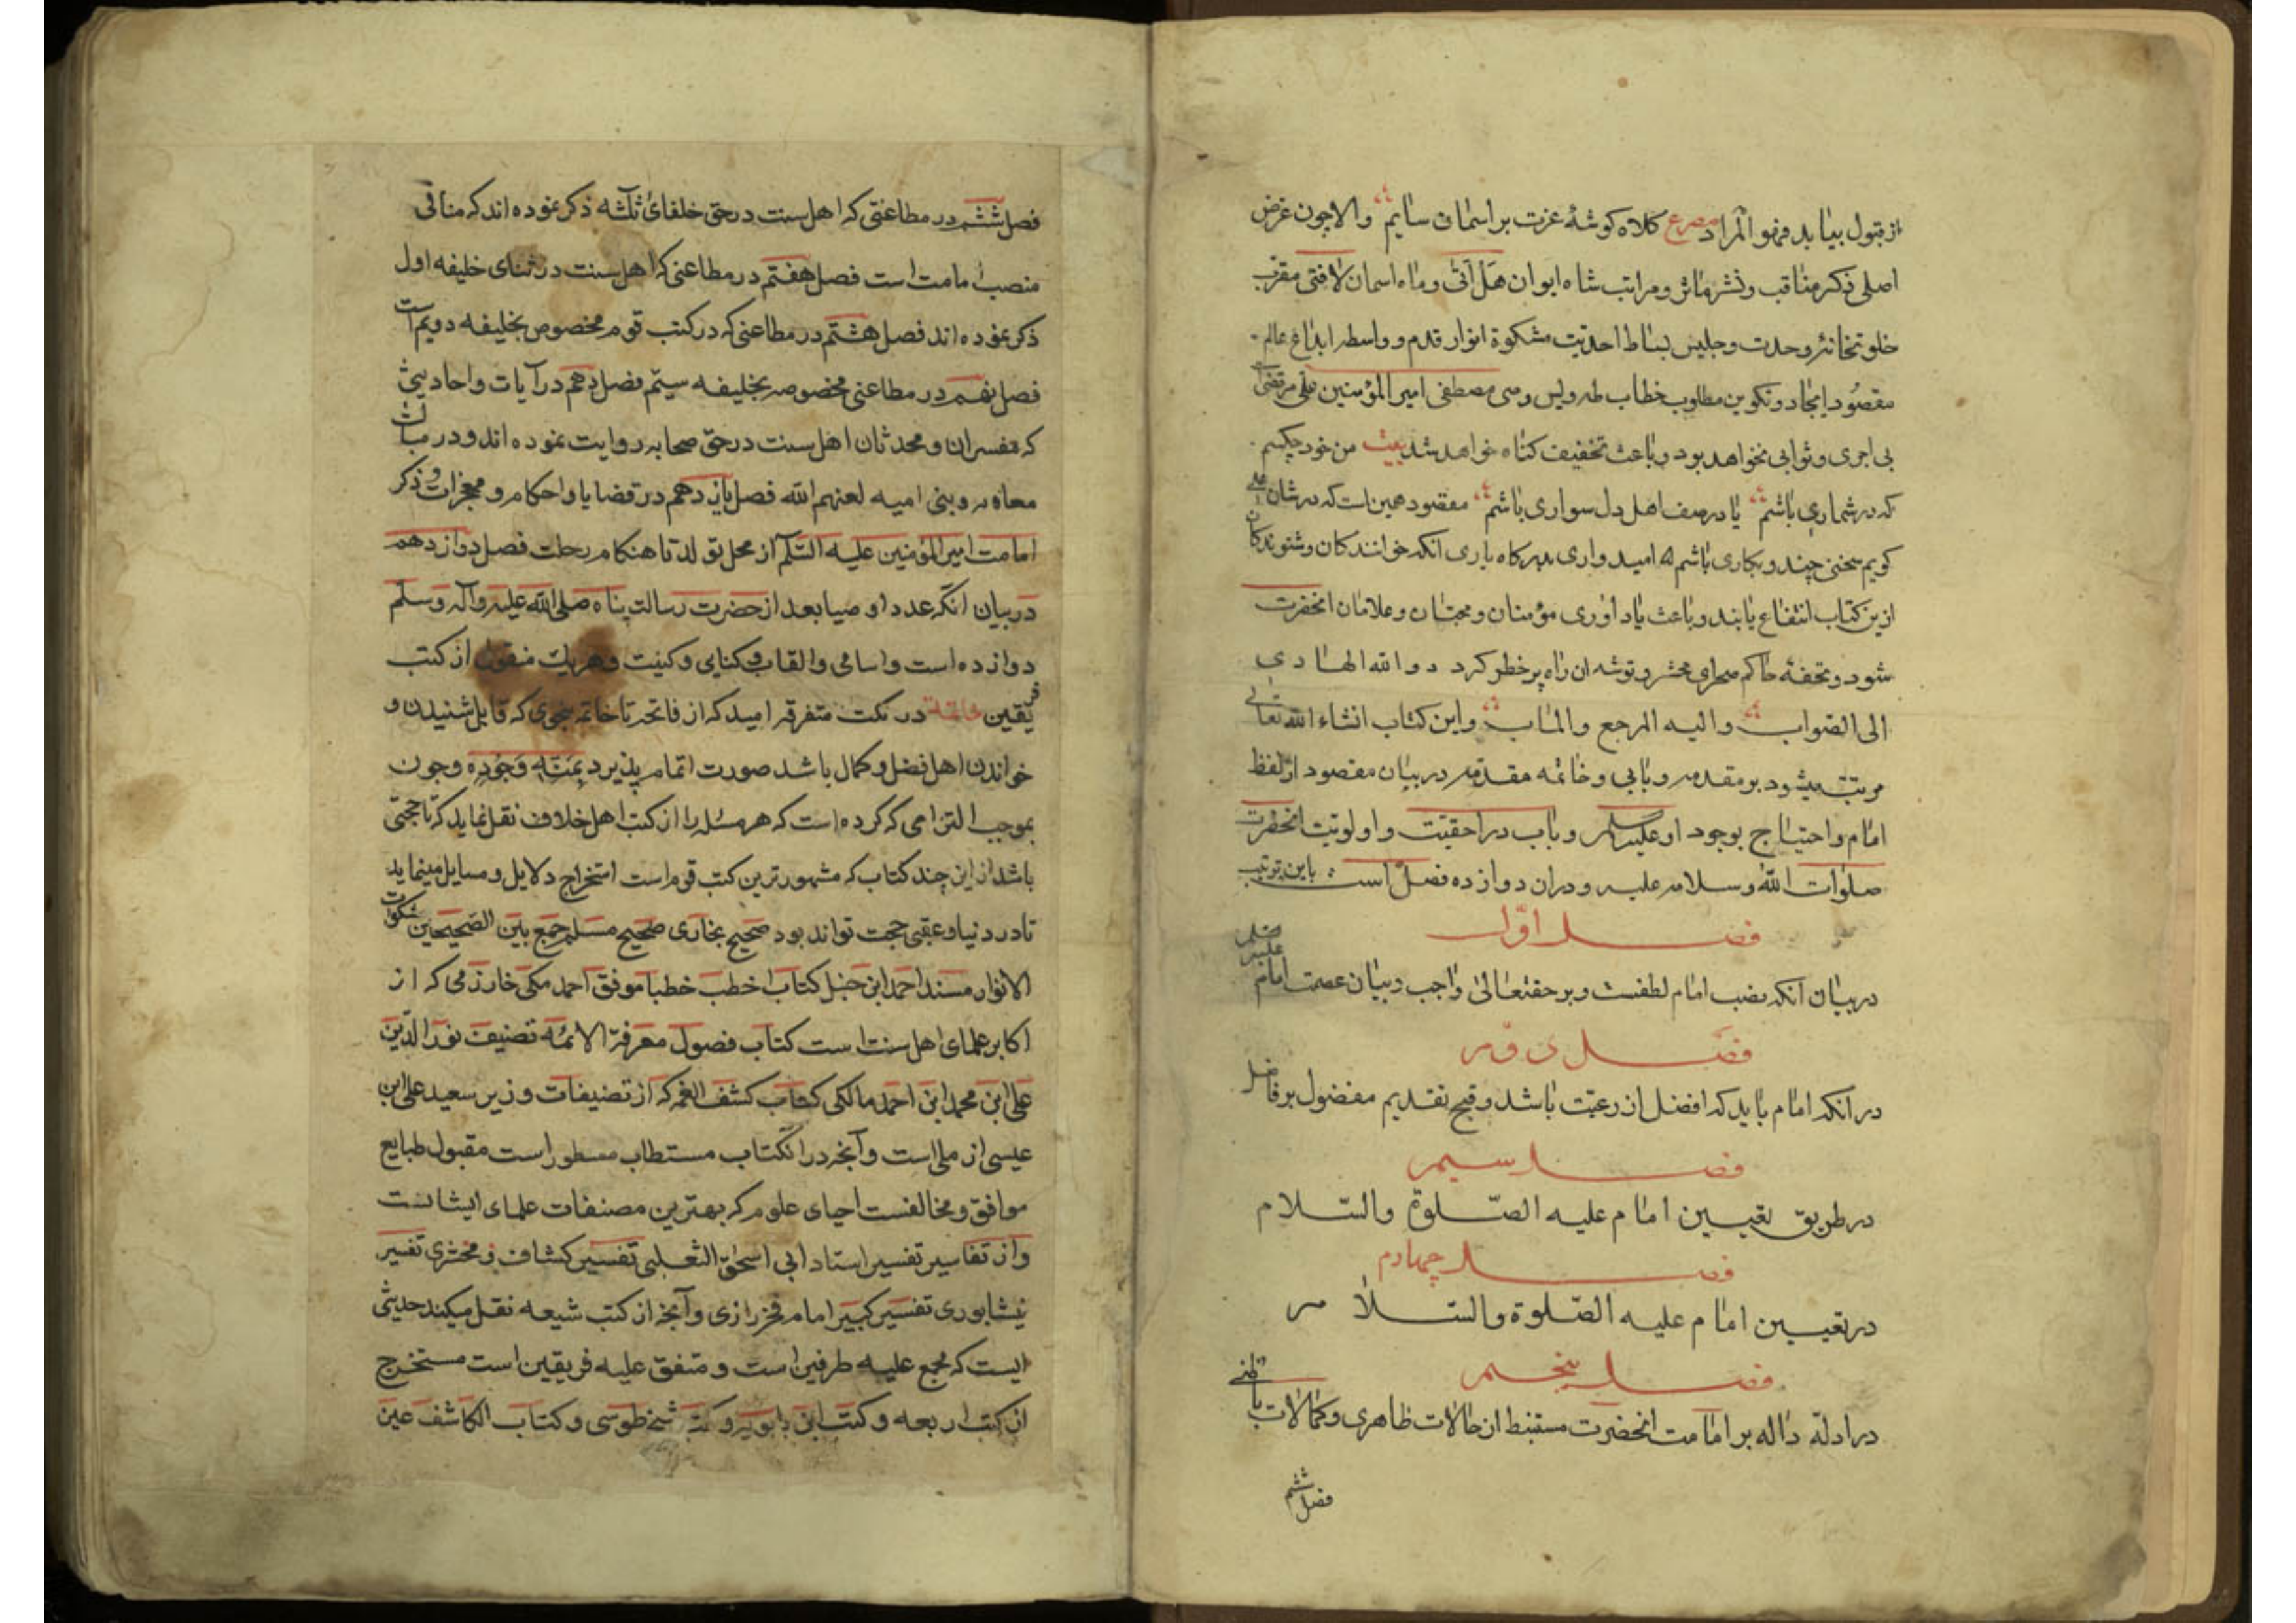 از قبول بیابد فهو المراد مصرع کلاه کوشهٔ عزت بر اسمان سایم والا چون غرض
اصلی ذکر مناقب ونشر مآثر ومراتب شاه ایوان هل اتی وماه اسمان لافتی مقرّب
خلوتخانهٔ وحدت وجلیس بساط احدیّت مشکوة انوار قدم وواسطه ابداع عالم
مقصود ایجاد وتکوین مطلوب خطاب طه ویس وصی مصطفی امیر المؤمنین علی مرتضی است
بی اجری وثوابی نخواهد بود وباعث تخفیف کناه خواهد شد بیت من خود چکسم
که در شماری باشم یا در صف اهل دل سواری باشم مقصود همین است که در شان علی
کویم سخنی چند وبکاری باشم امیدواری بدرکاه باری انکه خوانندکان وشنوندکان
ازین کتاب انتفاع یابند وباعث یاداوری مؤمنان ومحبّان وغلامان انحضرت
شود وتحفهٔ حاکم صحرای محشر وتوشه ان راه پر خطر کردد والله الهادی
الی الصّواب والیه المرجع والماب واین کتاب انشاء الله تعالی
مرتب میشود بر مقدمه وبابی وخاتمه مقدّمه در بیان مقصود از لفظ
امام واحتیاج بوجود او علیه السلم وباب در احقیّت واولویّت انحضرت
صلوات الله وسلامه علیه ودران دوازده فصل است باین ترتیب
فصل اوّل
در بیان آنکه نصب امام لطفست وبر حقتعالی واجب دربیان عصمت امام علیه
فصل دوّم
در آنکه امام باید که افضل از رعیّت باشد وقبح تقدیم مفضول بر فاضل
فصل سیم
در طریق تعیین امام علیه الصّلوة والسّلام
فصل چهارم
در تعیین امام علیه الصّلوة والسّلام
فصل پنجم
در ادلّه دالّه بر امامت انحضرت مستنبط از حالات ظاهری وکمالات باطنی
فصل ششم
فصل ششم در مطاعنی که اهل سنت در حق خلفای ثلثه ذکر نموده اند که منافی
منصب امامت است فصل هفتم در مطاعنی که اهل سنت در ثنای خلیفه اول
ذکر نموده اند فصل هشتم در مطاعنی که در کتب قوم مخصوص بخلیفه دویم است
فصل نهم در مطاعنی مخصوصه بخلیفه سیّم فصل دهم در آیات واحادیثی
که مفسران ومحدثان اهل سنت در حق صحابه روایت نموده اند ودر
معاویه وبنی امیه لعنهم الله فصل یازدهم در قضایا واحکام ومعجزات وذکر
امامت امیر المؤمنین علیه السّلم از محل تولد تا هنکام رحلت فصل دوازدهم
در بیان انکه عدد اوصیا بعد از حضرت رسالت پناه صلی الله علیه وآله وسلم
دوازده است واسامی والقاب وکنایی وکنیت وهریک منقول از کتب
فریقین خاتمه در نکت متفرقه امید که از فاتحه تا خاتمه بنحوی که قابل شنیدن و
خواندن اهل فضل وکمال باشد صورت اتمام پذیرد بمنّه وجوده وچون
بموجب التزامی که کرده است که هر مسئله را از کتب اهل خلاف نقل نماید که تا حجتی
باشد از این چند کتاب که مشهورترین کتب قوم است استخراج دلایل ومسایل مینماید
تا در دنیا وعقبی حجت تواند بود صحیح بخاری صحیح مسلم جمع بین الصّحیحین مشکوة
الانوار مسند احمد ابن حنبل کتاب اخطب خطبا موفق احمد مکی خارزمی که از
اکابر علمای اهل سنت است کتاب فصول معرفة الائمه تصنیف نور الدّین
علی ابن محمد ابن احمد مالکی کتاب کشف الغمه که از تصنیفات وزیر سعید علی ابن
عیسی از ملی است وآنچه در انکتاب مستطاب مسطور است مقبول طبایع
موافق ومخالفست احیای علوم که بهترین مصنفات علمای ایشانست
واز تفاسیر تفسیر استاد ابی اسحق الثعلبی تفسیر کشاف زمخشری تفسیر
نیشابوری تفسیر کبیر امام فخر رازی وآنچه از کتب شیعه نقل میکند حدیثی
ایست که مجمع علیه طرفین است ومتفق علیه فریقین است مستخرج
از کتب اربعه وکتب ابن بابویه وکتب شیخ طوسی وکتاب الکاشف عین